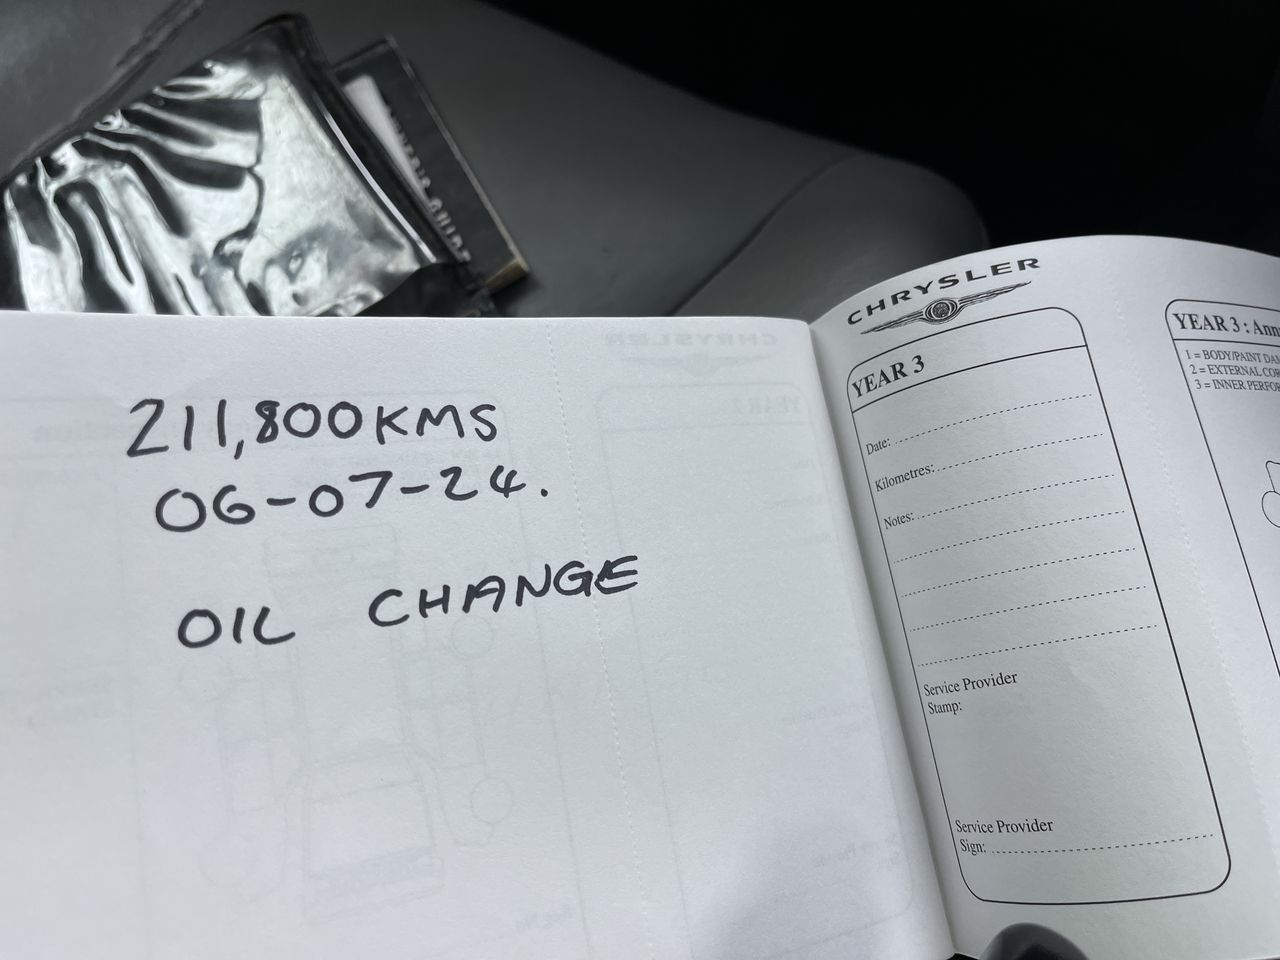 OWNER'S GUIDE
211,800KMS
06-07-24.
OIL CHANGE
CHRYSLER
YEAR 3
Date:
Kilometres:
Notes:
Service Provider
Stamp:
Service Provider
Sign:
YEAR 3 : Ann
1 = BODY/PAINT DA
2 = EXTERNAL COR
3 = INNER PERFOR